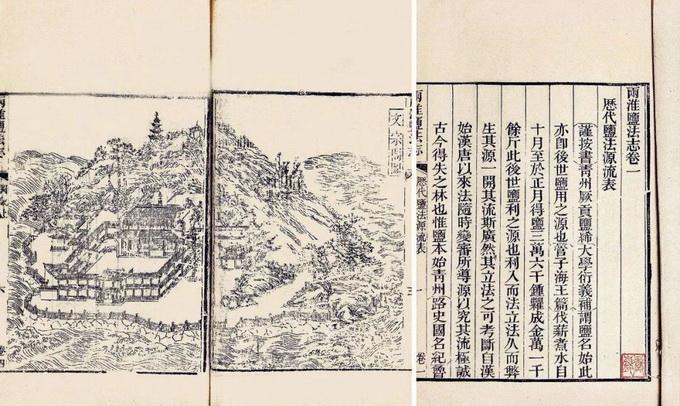 兩淮鹽法志卷一
歷代鹽法源流表
謹按書青州厥貢鹽絺大學衍義補謂鹽名始此
亦卽後世鹽用之源也管子海王篇伐薪煮水自
十月至於正月得鹽三萬六千鍾糶成金萬一千
餘斤此後世鹽利之源也利入而法立法久而弊
生其源一開其流斯廣然其立法之可考斷自漢
始漢唐以來法隨時變審所導源以究其流極誠
古今得失之林也惟鹽本始青州路史國名紀魯
兩淮鹽法志 歷代鹽法源流表 一 卷一
文宗閣圖
兩淮鹽法志 六 卷四